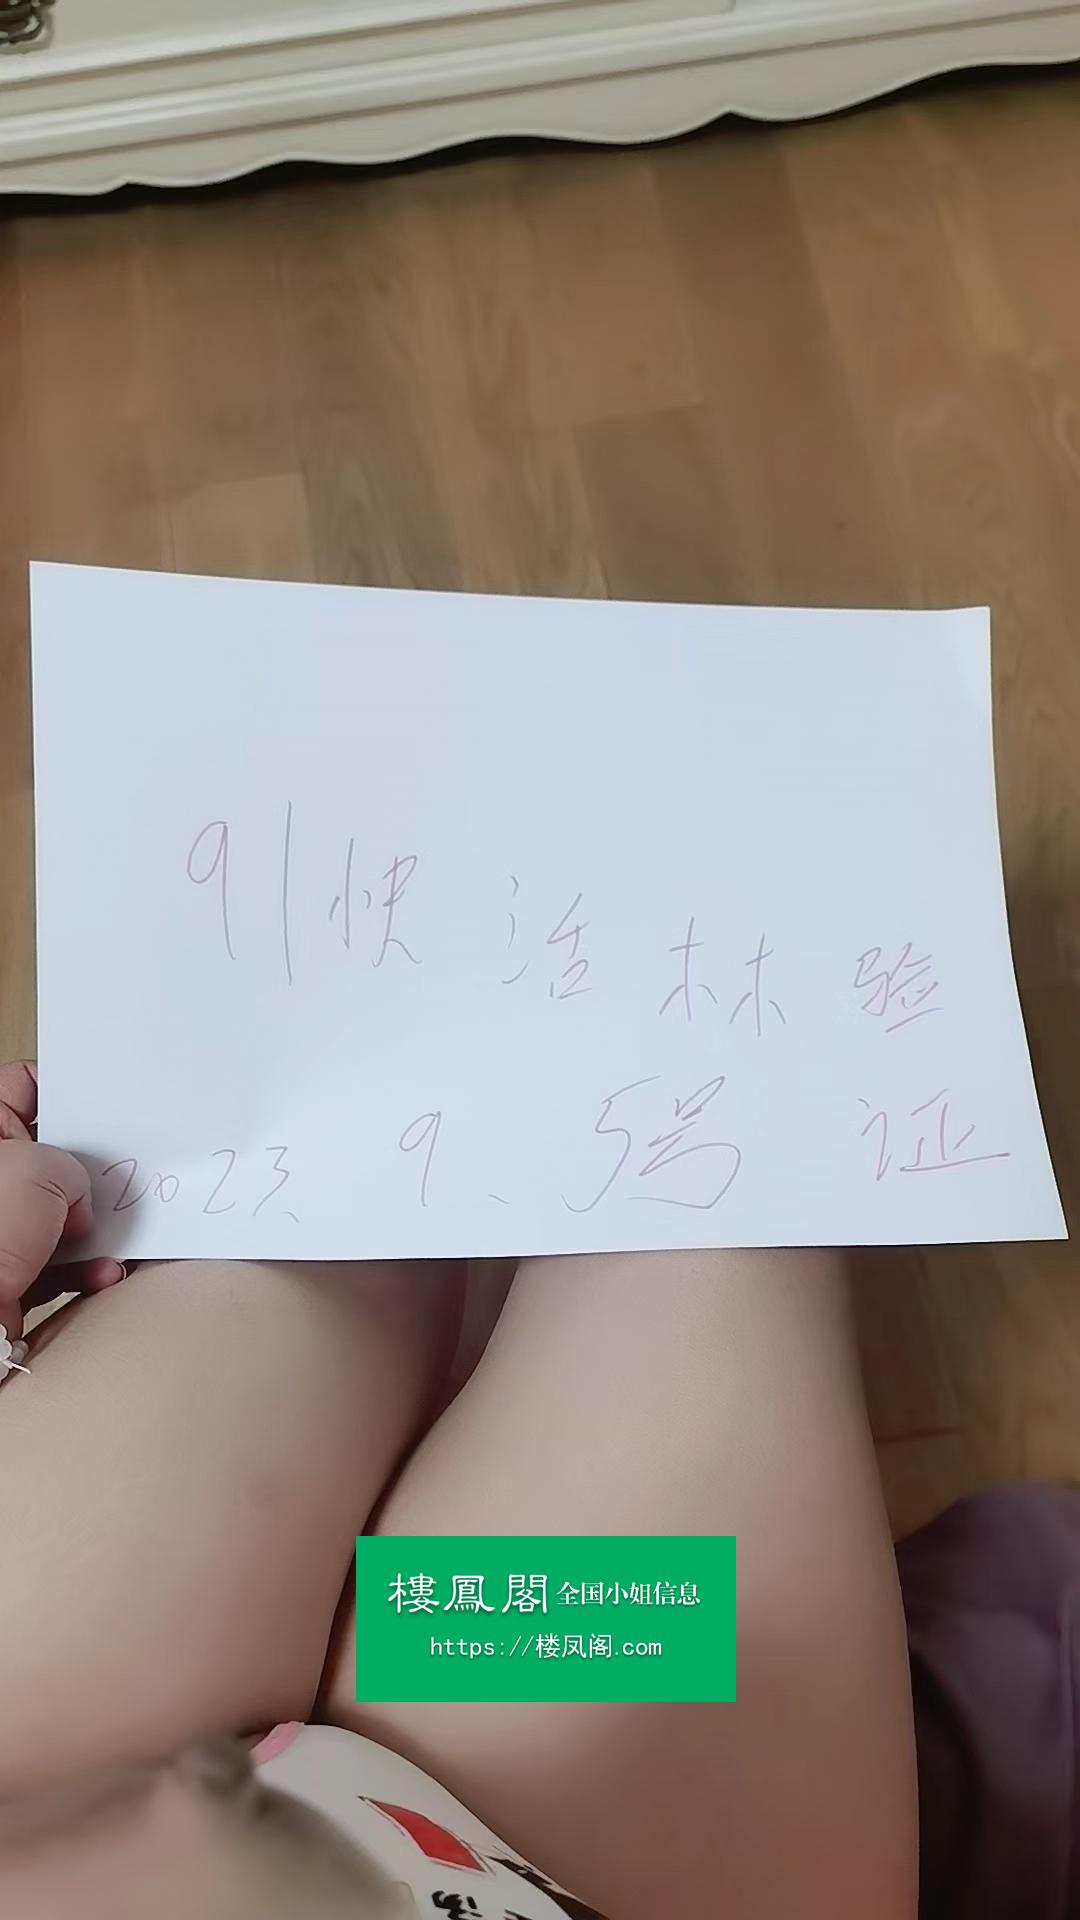 91快活林验
2023、9、5号 证
樓鳳閣 全国小姐信息
https://楼凤阁.com